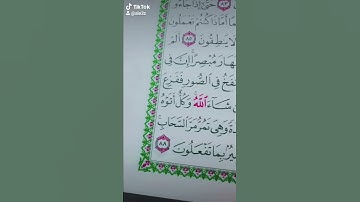 TikTok
٨٣ حَتَّىٰٓ إِذَا جَآءُو
أَمَّاذَا كُنتُمْ تَعْمَلُونَ
لَا يَنطِقُونَ ٨٥ أَلَمْ
هَارَ مُبْصِرًا إِنَّ فِى
نفَخُ فِى ٱلصُّورِ فَفَزِعَ
شَآءَ ٱللَّهُ وَكُلٌّ أَتَوْهُ
دَةً وَهِىَ تَمُرُّ مَرَّ ٱلسَّحَابِ
يرٌۢ بِمَا تَفْعَلُونَ ٨٨